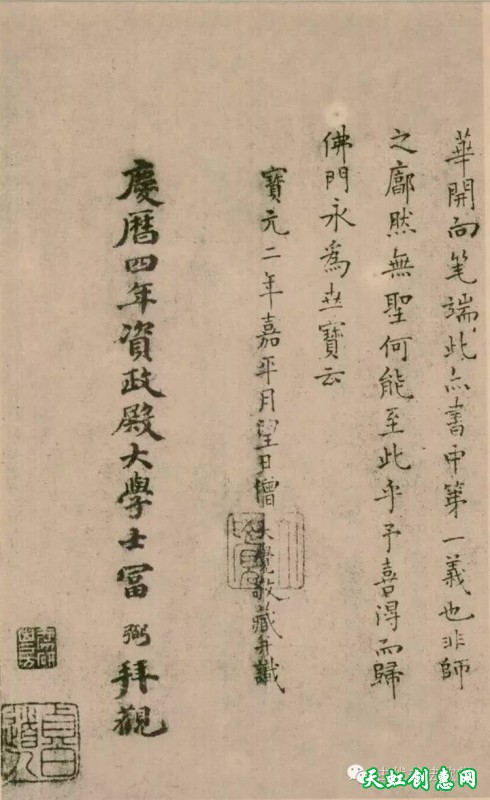 華開向笔端此亦書中第一義也非師
之廓然無聖何能至此乎予喜淂而歸
佛門永為世寶云
寶元二年嘉平月望日僧大覺敬藏并識
慶曆四年資政殿大學士富弼拜觀
天虹创惠网